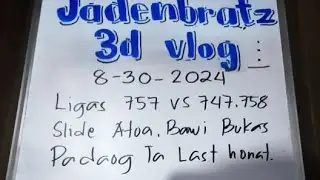 Jadenbratz
3d vlog
8-30-2024
Ligas 757 vs 747.758
Slide Atoa. Bawi Bukas
Padaog Ta Last honat.